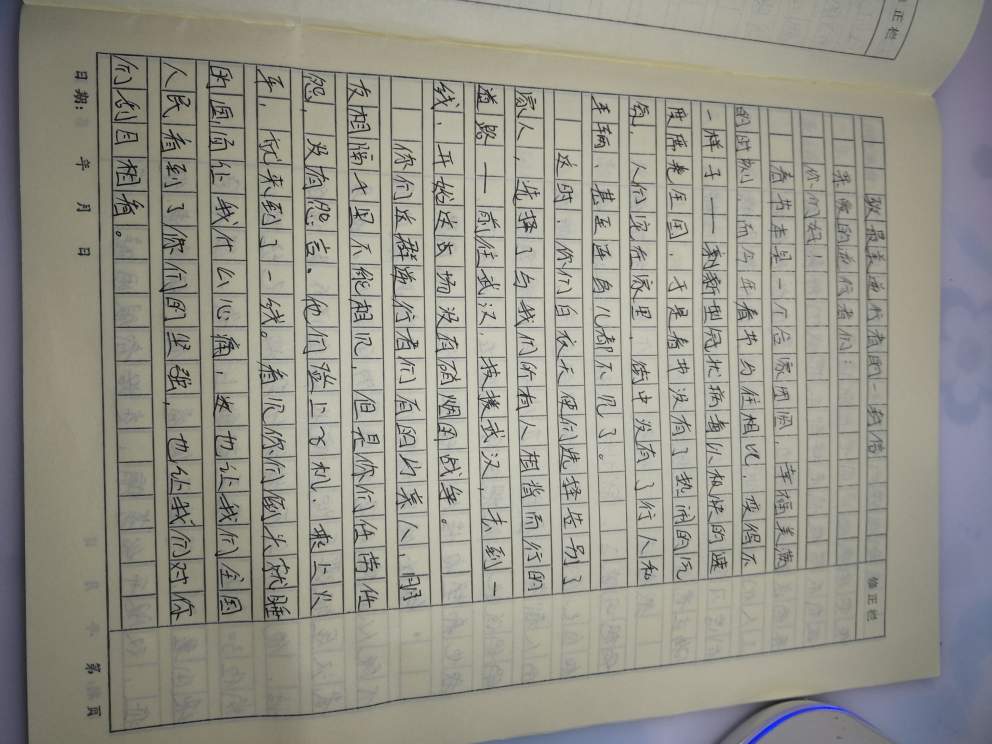 正栏
修正栏
致最美逆行者的一封信
亲爱的逆行者们:
你们好!
春节本是一个合家团圆,幸福美满
的时刻,而今年春节与往相比,变得不
一样了——一种新型冠状病毒以极快的速
度席卷全国,于是春节没有了热闹的气
氛,人们宅在家里,街中没有了行人和
车辆,甚至连鸟儿都不见了。
这时,你们白衣天使们选择告别了
家人,选择了与我们所有人相背而行的
道路——前往武汉,救援武汉,去到一
线,开始这去场没有硝烟的战争。
你们这群逆行者们有的以亲人,朋
友相隔七里不能相见,但是你们任劳任
怨,没有怨言。他们登上飞机,乘上火
车,就来到了一线。看见你们倒头就睡
的画面让我什么心痛,这也让我们全国
人民看到了你们的坚强,也让我们对你
们刮目相看。
日期: 年 月 日
第 页